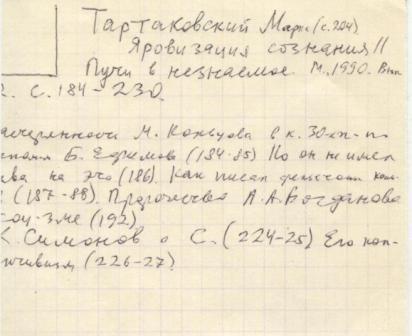 Тартаковский Марк (с.204)
Яровизация сознания //
Пути в незнаемое. М., 1990. Вып
2. С. 184-230.
М. Кольцова в к. 30-х
Б. Ефимов (184-85) Но он не имел
ва на это (186). Как писал
(187-88). Пророчество А.А. Богданова
соц-зме (192)
К. Симонов о С. (224-25) Его
(226-27)